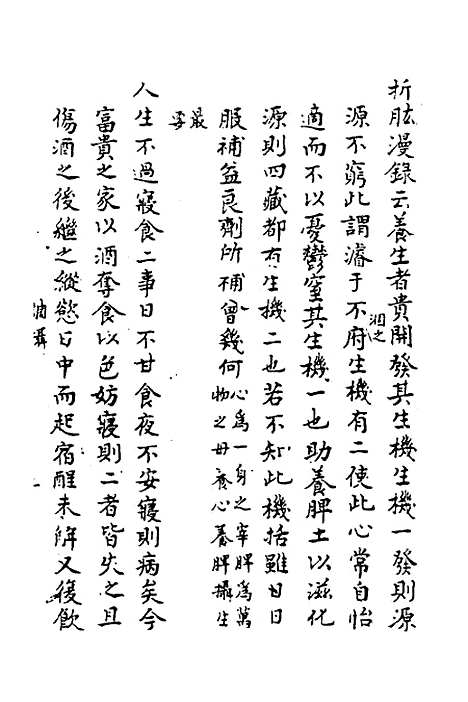 折肱漫錄云養生者貴開發其生機生機一發則源
源不窮此謂濬于不涸之府生機有二使此心常自怡
適而不以憂鬱窒其生機一也助養脾土以滋化
源則四藏都有生機二也若不知此機括雖日日
服補益良劑所補曾幾何心為一身之宰脾為萬
物之母養心養脾攝生
最要
人生不過寢食二事日不甘食夜不安寢則病矣今
富貴之家以酒奪食以色妨寢則二者皆失之且
傷酒之後繼之縱慾日中而起宿酲未解又復飲